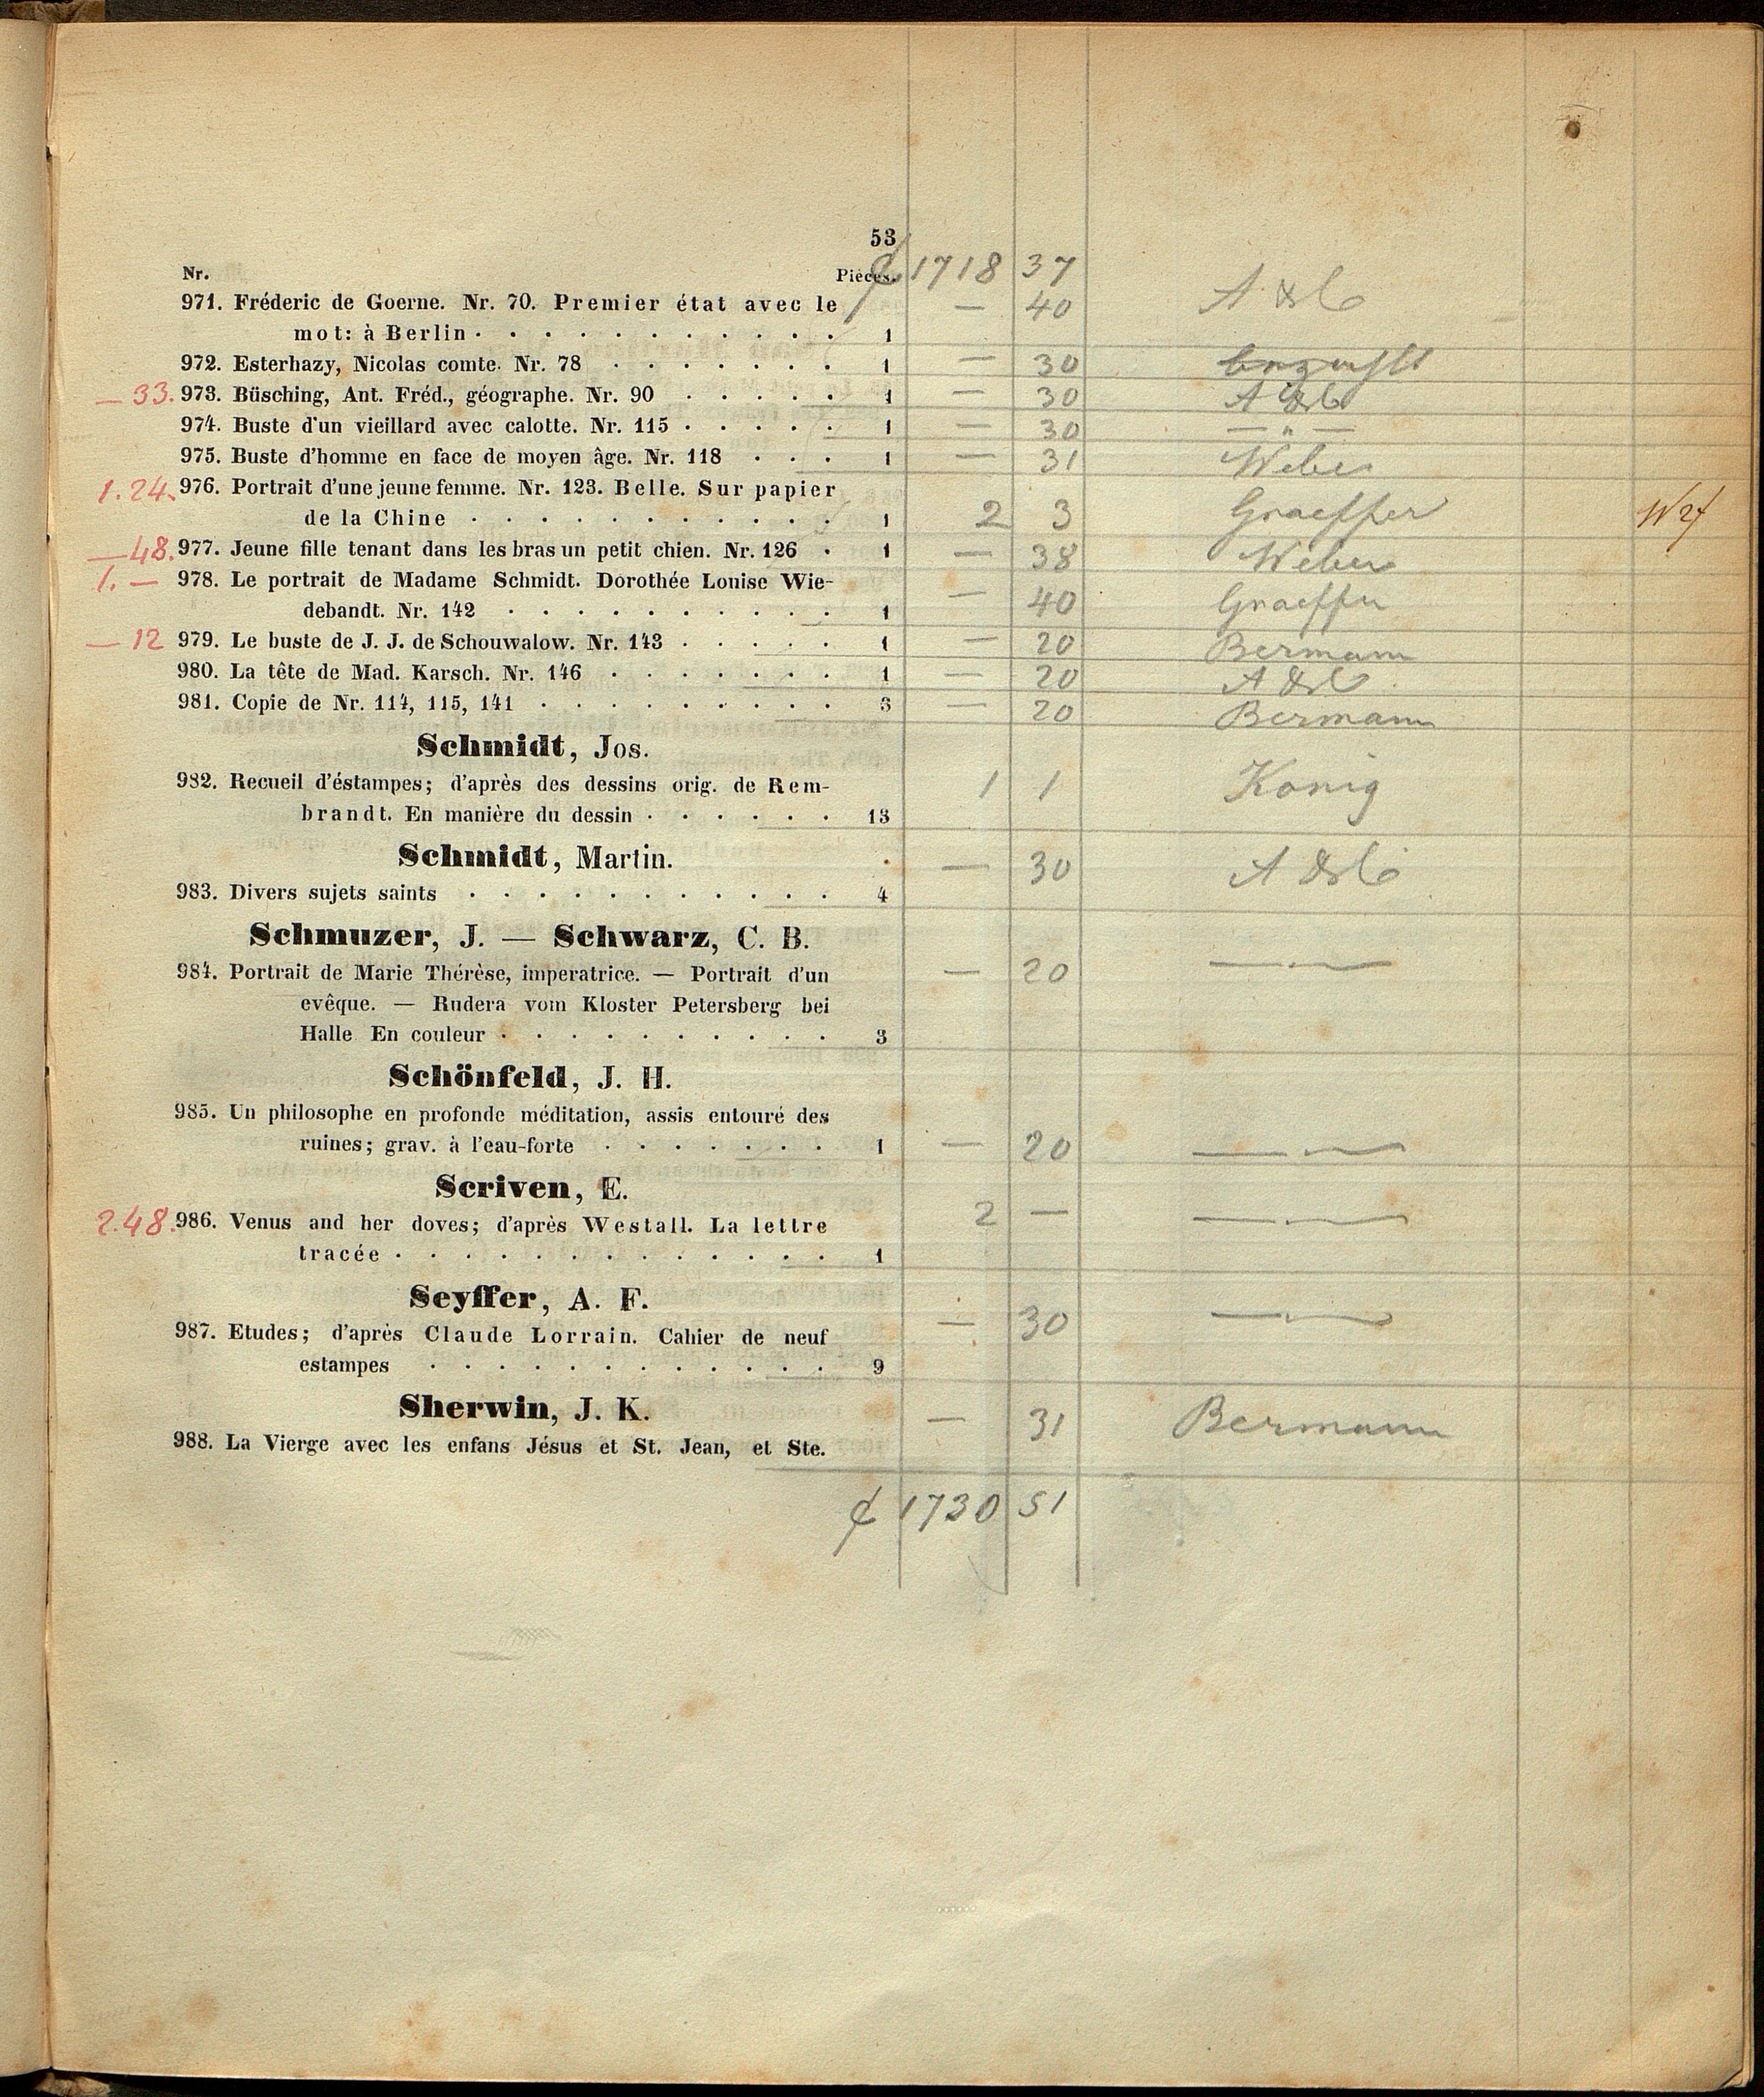 53
Nr. Pièces. 1718 37
971. Fréderic de Goerne. Nr. 70. Premier état avec le — 40 A & Co
mot: à Berlin . . . . . . . . . . . 1
972. Esterhazy, Nicolas comte. Nr. 78 . . . . . . . 1 — 30
— 33. 973. Büsching, Ant. Fréd., géographe. Nr. 90 . . . . . 1 — 30 A & Co
974. Buste d'un vieillard avec calotte. Nr. 115 . . . . . 1 — 30 — " —
975. Buste d'homme en face de moyen âge. Nr. 118 . . . 1 — 31 Weber
1.24. 976. Portrait d'une jeune femme. Nr. 123. Belle. Sur papier
de la Chine . . . . . . . . . . . 1 2 3 Graeffer
— 48. 977. Jeune fille tenant dans les bras un petit chien. Nr. 126 . 1 — 38 Weber
1. — 978. Le portrait de Madame Schmidt. Dorothée Louise Wie-
debandt. Nr. 142 . . . . . . . . . . 1 — 40 Graeffer
— 12 979. Le buste de J. J. de Schouwalow. Nr. 143 . . . . . 1 — 20 Bermann
980. La tête de Mad. Karsch. Nr. 146 . . . . . . . 1 — 20 A & Co
981. Copie de Nr. 114, 115, 141 . . . . . . . . . 3 — 20 Bermann
Schmidt, Jos.
982. Recueil d'éstampes; d'après des dessins orig. de Rem- 1 1 König
brandt. En manière du dessin . . . . . . 13
Schmidt, Martin. — 30 A & Co
983. Divers sujets saints . . . . . . . . . . . 4
Schmuzer, J. — Schwarz, C. B.
984. Portrait de Marie Thérèse, imperatrice. — Portrait d'un — 20 — . —
evêque. — Rudera vom Kloster Petersberg bei
Halle En couleur . . . . . . . . . . 3
Schönfeld, J. H.
985. Un philosophe en profonde méditation, assis entouré des
ruines; grav. à l'eau-forte . . . . . . . 1 — 20 — . —
Scriven, E.
2.48. 986. Venus and her doves; d'après Westall. La lettre 2 — — . —
tracée . . . . . . . . . . . . . 1
Seyffer, A. F.
987. Etudes; d'après Claude Lorrain. Cahier de neuf — 30 — . —
estampes . . . . . . . . . . . . 9
Sherwin, J. K. — 31 Bermann
988. La Vierge avec les enfans Jésus et St. Jean, et Ste.
1730 51